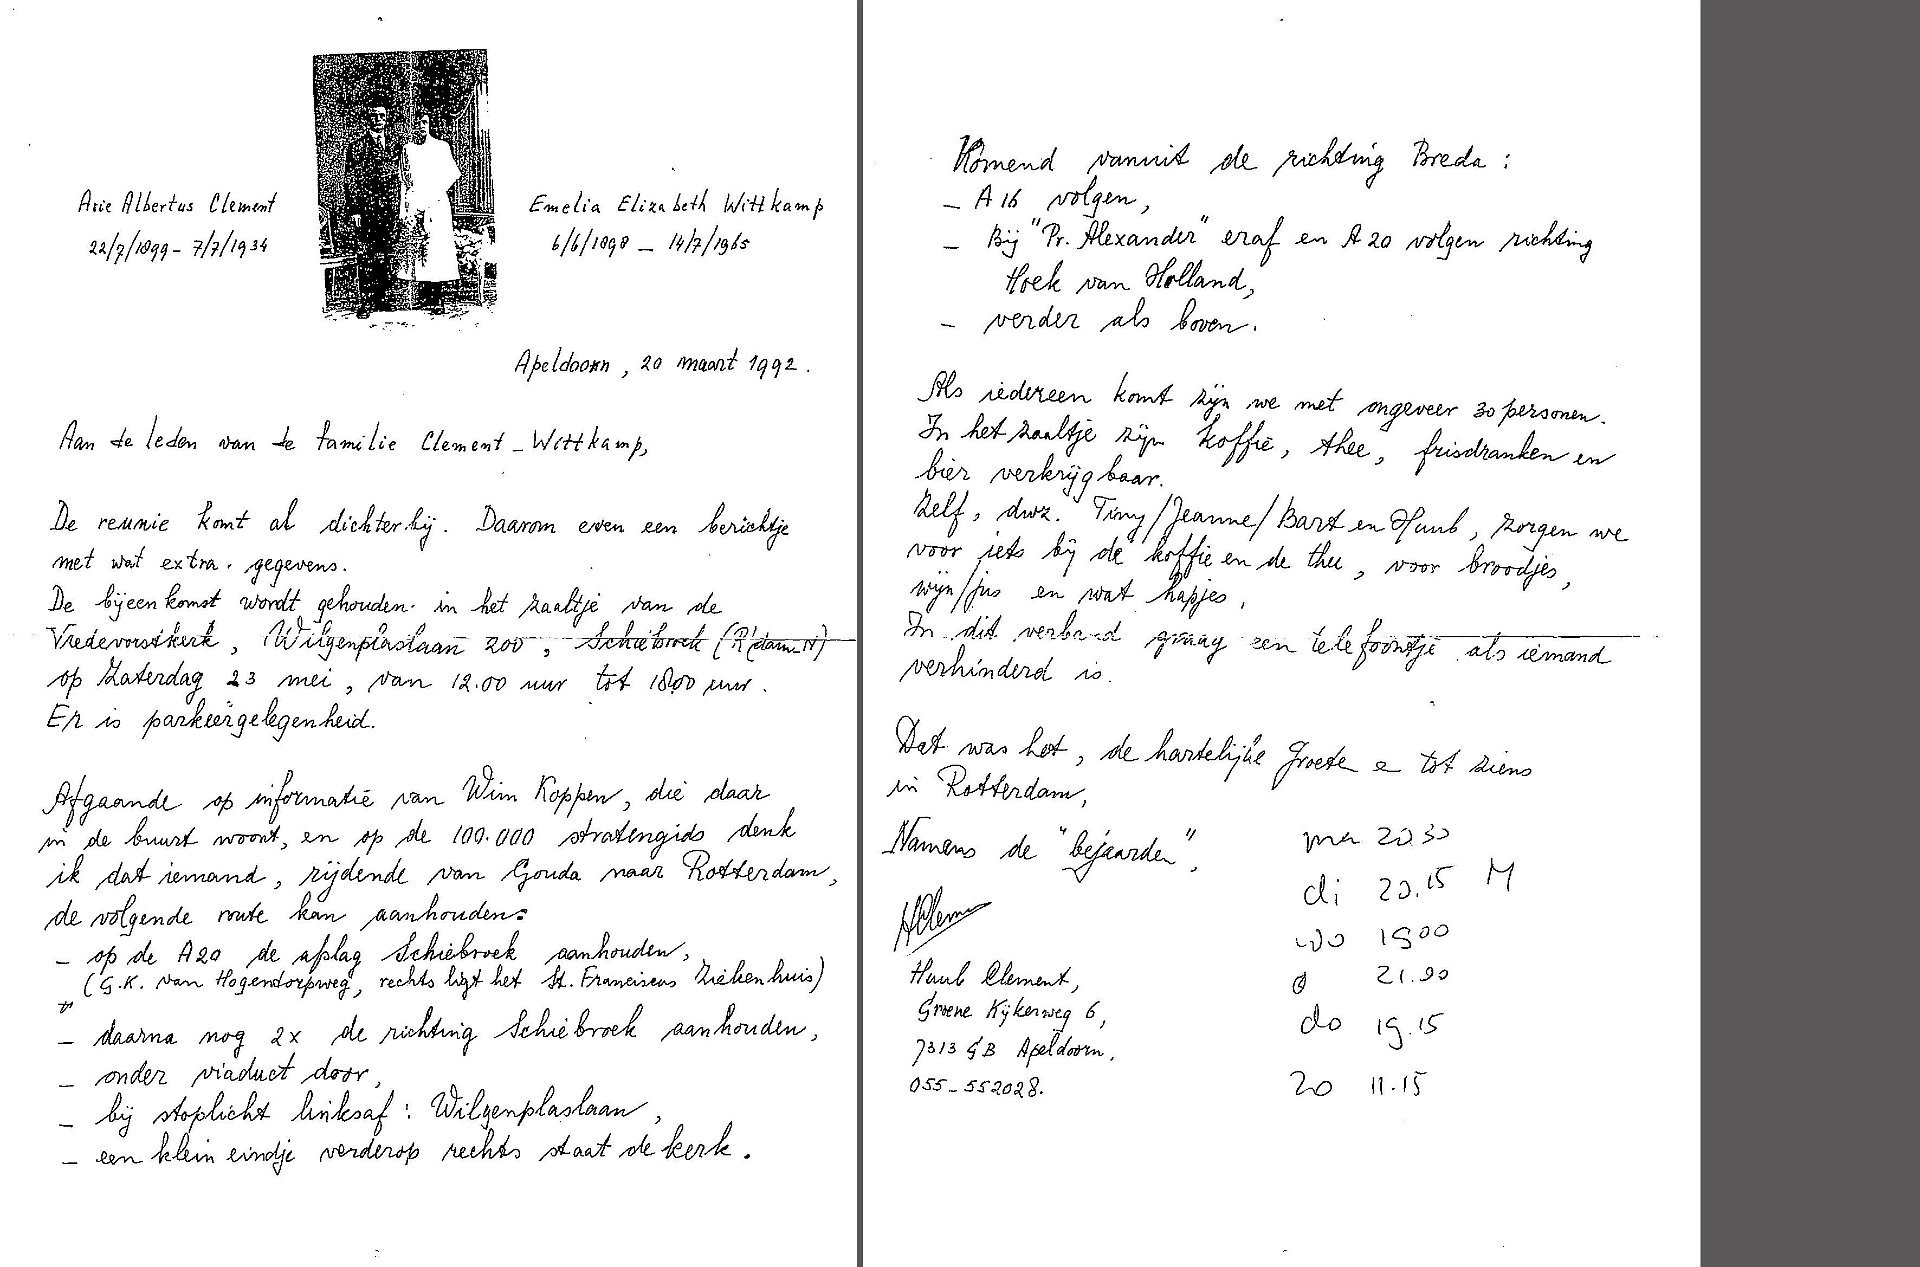 Arie Albertus Clement
22/7/1899 - 7/7/1934
Emelia Elizabeth Wittkamp
6/6/1898 - 14/7/1965
Apeldoorn, 20 maart 1992.
Aan de leden van de familie Clement-Wittkamp,
De reunie komt al dichterbij. Daarom even een berichtje
met wat extra gegevens.
De bijeenkomst wordt gehouden in het zaaltje van de
Vredevorstkerk, Wilgenplaslaan 200, Schiebroek (R'dam-N)
op Zaterdag 23 mei, van 12.00 uur tot 18.00 uur.
Er is parkeergelegenheid.
Afgaande op informatie van Wim Koppen, die daar
in de buurt woont, en op de 100.000 stratengids denk
ik dat iemand, rijdende van Gouda naar Rotterdam,
de volgende route kan aanhouden:
- op de A20 de afslag Schiebroek aanhouden,
(G.K. van Hogendorpweg, rechts ligt het St. Franciscus Ziekenhuis)
- daarna nog 2x de richting Schiebroek aanhouden,
- onder viaduct door,
- bij stoplicht linksaf: Wilgenplaslaan,
- een klein eindje verderop rechts staat de kerk.
Komend vanuit de richting Breda:
- A 16 volgen,
- Bij "Pr. Alexander" eraf en A 20 volgen richting
Hoek van Holland,
- verder als boven.
Als iedereen komt zijn we met ongeveer 30 personen.
In het zaaltje zijn koffie, thee, frisdranken en
bier verkrijgbaar.
Zelf, dwz. Tiny/Jeanne/Bart en Huub, zorgen we
voor iets bij de koffie en de thee, voor broodjes,
wijn/jus en wat hapjes.
In dit verband graag een telefoontje als iemand
verhinderd is.
Dat was het, de hartelijke groete en tot ziens
in Rotterdam,
Namens de "bejaarden",
HClem
Huub Clement,
Groene Kijkerweg 6,
7313 GB Apeldoorn,
055-552028.
ma 20.30
di 20.15 M
wo 1900
21.30
do 19.15
zo 11.15